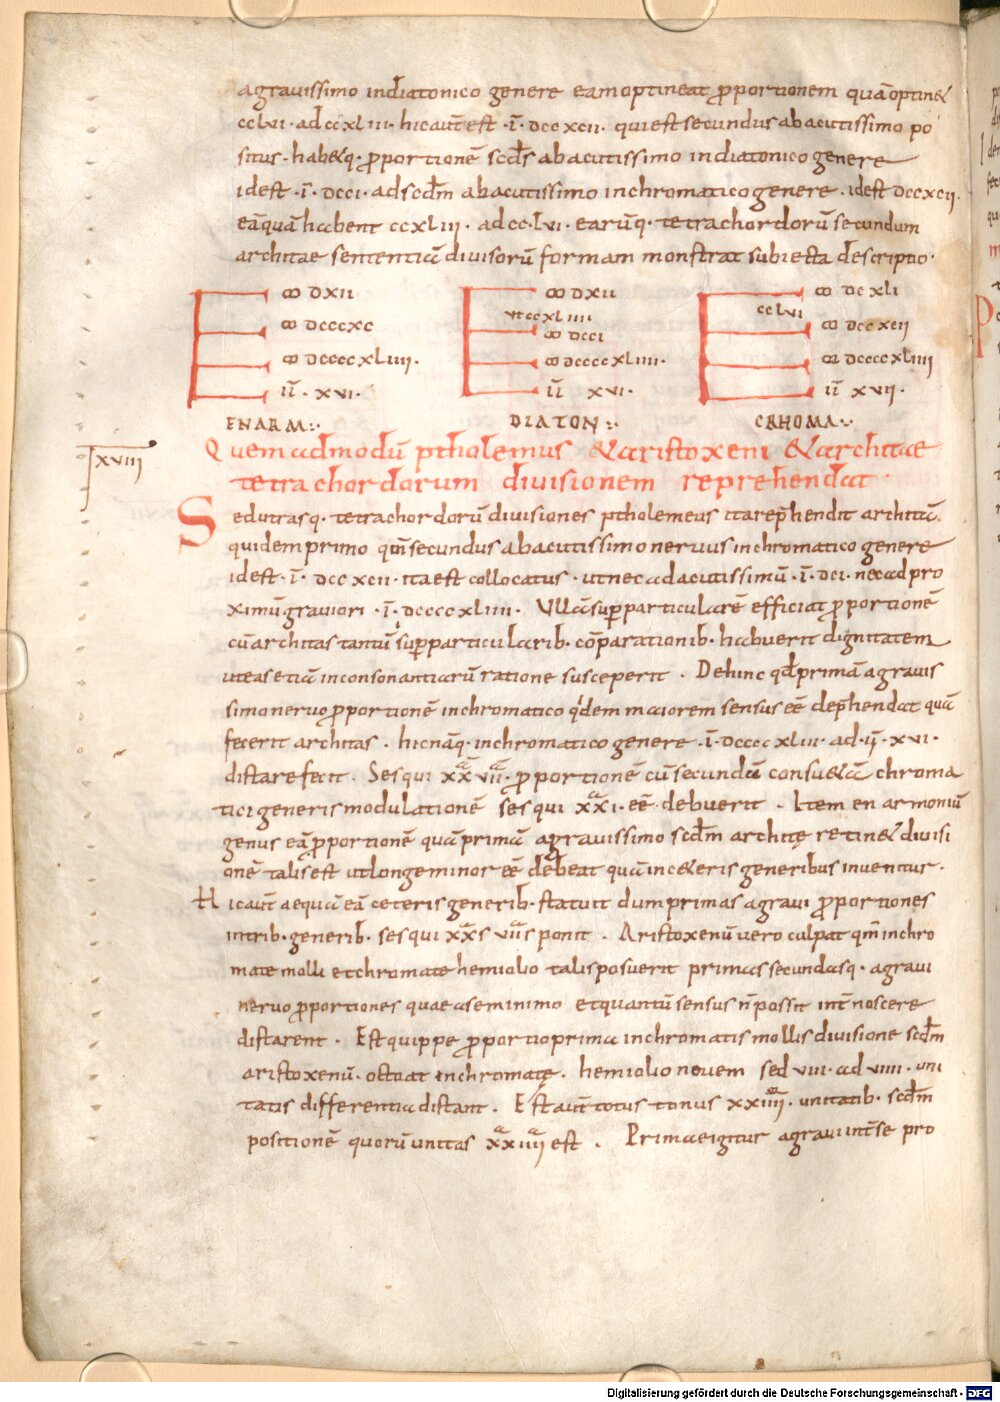 agrauissimo indiatonico genere eam optineat p̄portionem quā optin&
cclvi · ad ccxliii · hic aut̄ est · ī · dccxcii · qui est secundus ab acutissimo po
situs · hab&q · p̄portionē scd̄s ab acutissimo in diatonico genere
id est · ī · dcci · ad scd̄m ab acutissimo in chromatico genere · id est dccxcii ·
eā quā habent ccxliii · ad cc·lvi · earūq · tetrachordorū secundum
architae sententiā diuisorū formam monstrat subiecta descriptio ·
ꝏ dxii
ꝏ dcccxc
ꝏ dccccxliiii ·
īī · xvi ·
ENARM :·
ꝏ dxii
ut ccxliiii
ꝏ dcci
ꝏ dccccxliiii ·
īī xvi ·
DIATON :·
ꝏ dcxli
cclvi
ꝏ dccxcii
ꝏ dccccxliiii
īī · xvii ·
CRHOMA :·
xviii
Quemadmodū ptholemus & aristoxeni & architae
tetrachordorum diuisionem reprehendat ·
Sed utrasq · tetrachordorū diuisiones ptholemeus ita rep̄hendit architā
quidem primo qm̄ secundus ab acutissimo neruus in chromatico genere
id est · ī · dccxcii · ita est collocatus · ut nec ad acutissimū · ī · dci · nec ad pro
ximū grauiori · ī · dccccxliiii · Ullā sup̄particularē efficiat p̄portionē
cū architas tantū sup̄particularib · cōparationib · habuerit dignitatem
ut eas etiā in consonantiarū ratione susceperit · Dehinc qd̄ primā a grauis
simo neruo p̄portionē in chromatico q'dem maiorem sensus eē dep̄hendat quā
fecerit architas · hic nāq · in chromatico genere · ī · dccccxliiii · ad · īī · xvi ·
distare fecit · Sesqui xx vii · p̄portionē cū secundū consu&ā chroma
tici generis modulationē sesqui xxi · eē debuerit · Item en armoniū
genus eā p̄portionē quā primā a grauissimo scd̄m architę retin& diuisi
onē talis est ut longe minor eē debeat quā in c&eris generibus inuenitur ·
Hic aut̄ aequā eā ceteris generib · statuit dum primas a graui p̄portiones
in trib · generib · sesqui xxs viis ponit · Aristoxenū uero culpat qm̄ in chro
mate molli et chromate hemiolio talis posuerit primas secundasq · a graui
neruo p̄portiones quae a se minimo et quantū sensus n̄ possit int̄noscere
distarent · Est quippe p̄portio prima in chromatis mollis diuisione scd̄m
aristoxenū · octo at in chromatę · hemiolio nouem sed viii · ad viiii · uni
tatis differentia distant · Est aut̄ totus tonus xxiiii · unitatib · scd̄m
positionē quorū unitas xxiiii est · Prima eigitur a graui int̄se pro